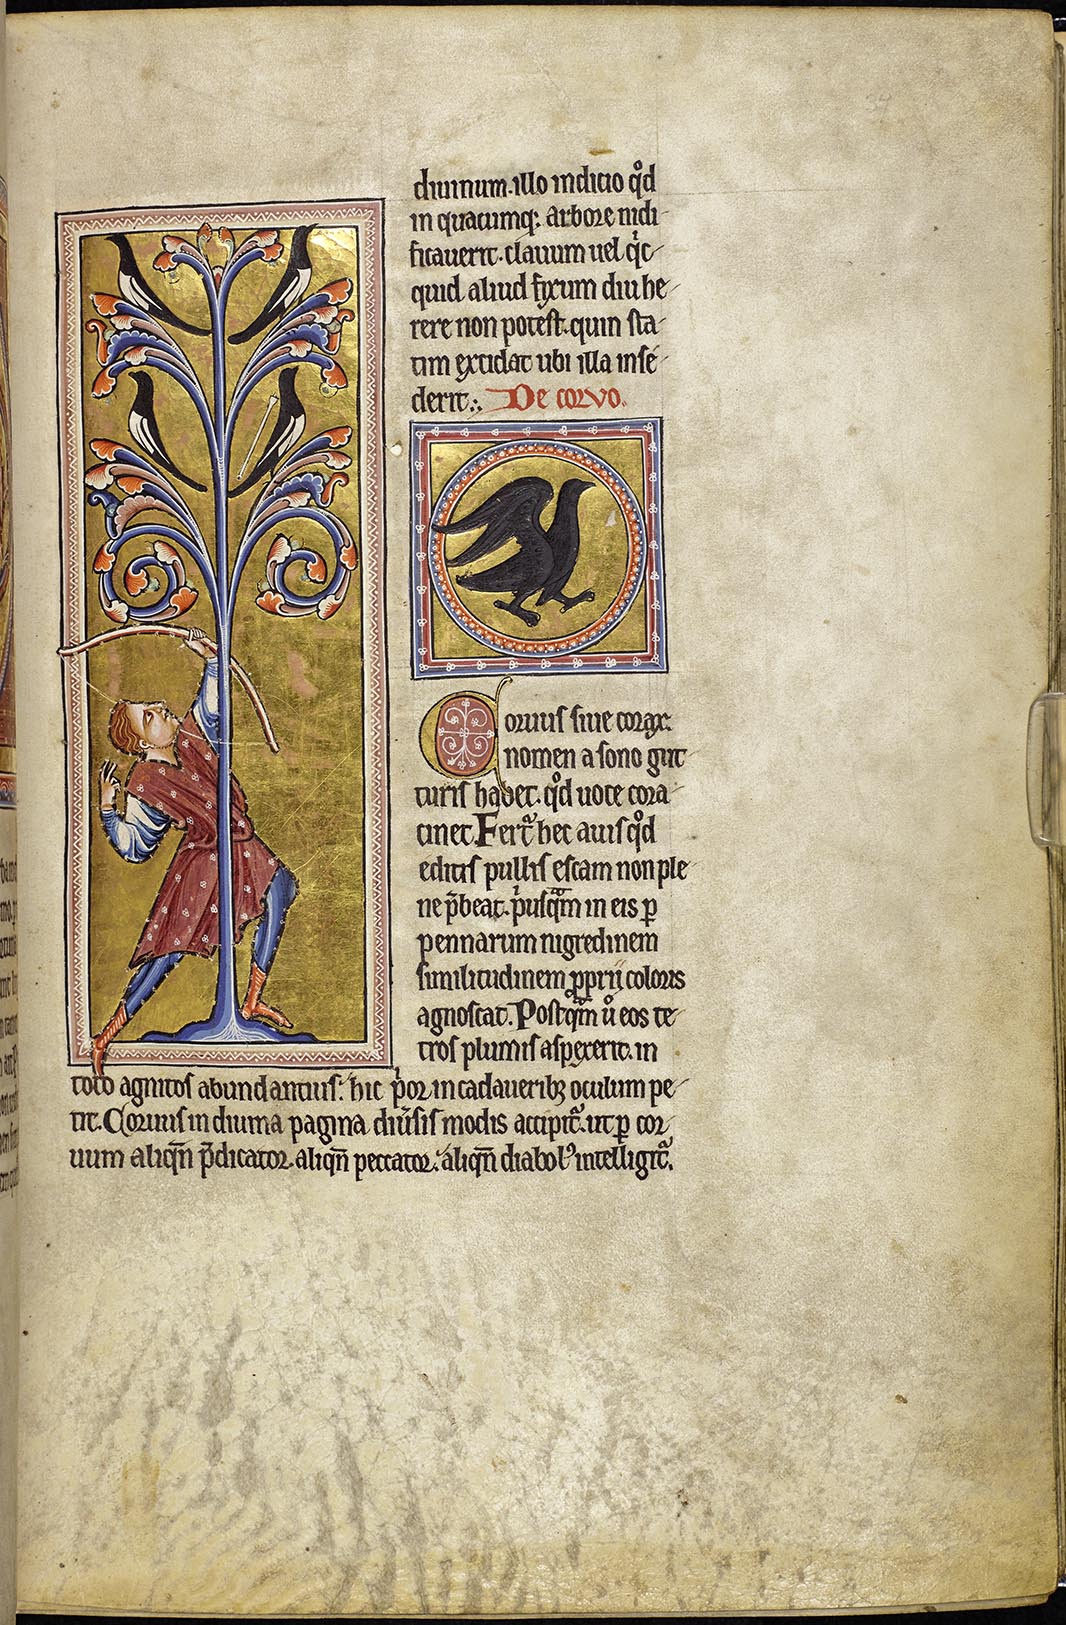 diuinum. illo indicio qͦd
in quacumq; arbore nidi-
ficauerit. clauum uel qͥc-
quid aliud fixum diu he-
rere non potest. quin sta-
tim excidat ubi illa inse-
derit:. De corvo.
Coruus siue corax.
nomen a sono gut
turis habet. qͦd uoce cora-
cinet. Fert᷑ hec auis qͦd
editis pullis escam non ple
ne p̄beat. pͥusq̄m in eis ꝑ
pennarum nigredinem
similitudinem ꝓprii coloris
agnoscat. Postq̄m uͦ eos te-
tros plumis aspexerit. in
toto agnitos abundantius. hic pͥor in cadaueribꝫ oculum pe-
tit. Coruus in diuina pagina diu̓sis modis accipit᷑. ut ꝑ cor-
uum aliqn̄ p̄dicator. aliqn̄ peccator. aliqn̄ diabolꝰ intelligit᷑.